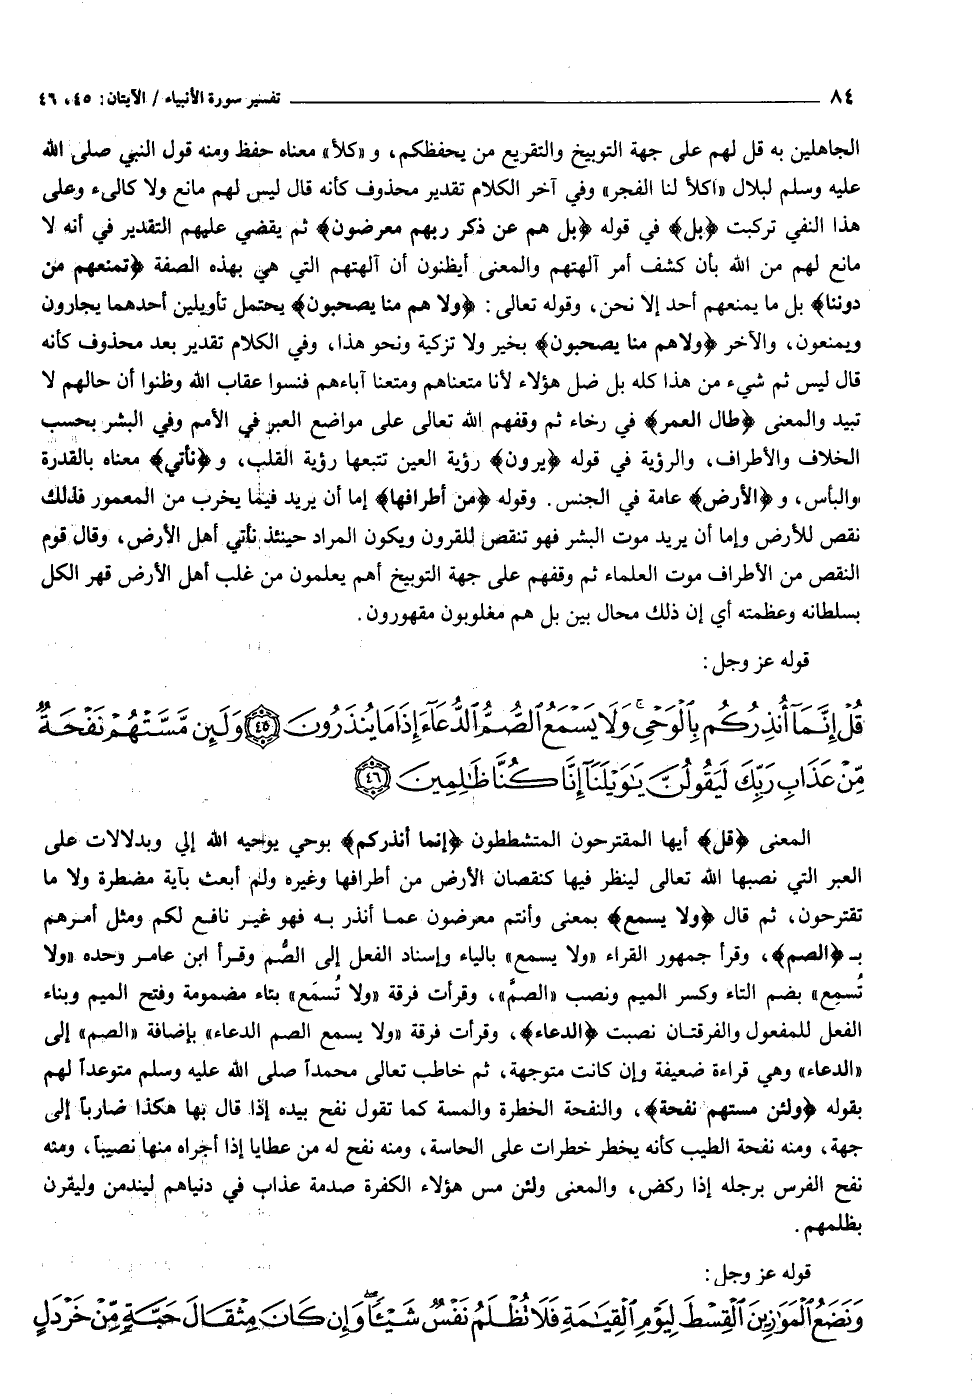 ٨٤ ـــــــ تفسير سورة الأنبياء / الآيتان: ٤٥، ٤٦
الجاهلين به قل لهم على جهة التوبيخ والتقريع من يحفظكم، و «كلأ» معناه حفظ ومنه قول النبي صلى الله
عليه وسلم لبلال «اكلأ لنا الفجر» وفي آخر الكلام تقدير محذوف كأنه قال ليس لهم مانع ولا كالىء وعلى
هذا النفي تركبت ﴿بل﴾ في قوله ﴿بل هم عن ذكر ربهم معرضون﴾ ثم يقضي عليهم التقدير في أنه لا
مانع لهم من الله بأن كشف أمر آلهتهم والمعنى أيظنون أن آلهتهم التي هي بهذه الصفة ﴿تمنعهم من
دوننا﴾ بل ما يمنعهم أحد إلا نحن، وقوله تعالى: ﴿ولا هم منا يصحبون﴾ يحتمل تأويلين أحدهما يجارون
ويمنعون، والآخر ﴿ولاهم منا يصحبون﴾ بخير ولا تزكية ونحو هذا، وفي الكلام تقدير بعد محذوف كأنه
قال ليس ثم شيء من هذا كله بل ضل هؤلاء لأنا متعناهم ومتعنا آباءهم فنسوا عقاب الله وظنوا أن حالهم لا
تبيد والمعنى ﴿طال العمر﴾ في رخاء ثم وقفهم الله تعالى على مواضع العبر في الأمم وفي البشر بحسب
الخلاف والأطراف، والرؤية في قوله ﴿يرون﴾ رؤية العين تتبعها رؤية القلب، و ﴿نأتي﴾ معناه بالقدرة
والبأس، و ﴿الأرض﴾ عامة في الجنس. وقوله ﴿من أطرافها﴾ إما أن يريد فيما يخرب من المعمور فذلك
نقص للأرض وإما أن يريد موت البشر فهو تنقص للقرون ويكون المراد حينئذ نأتي أهل الأرض، وقال قوم
النقص من الأطراف موت العلماء ثم وقفهم على جهة التوبيخ أهم يعلمون من غلب أهل الأرض قهر الكل
بسلطانه وعظمته أي إن ذلك محال بين بل هم مغلوبون مقهورون.
قوله عز وجل:
قُلْ إِنَّمَآ أُنذِرُكُم بِالْوَحْىِ ۚ وَلَا يَسْمَعُ الصُّمُّ الدُّعَآءَ إِذَا مَا يُنذَرُونَ ﴿٤٥﴾ وَلَئِن مَّسَّتْهُمْ نَفْحَةٌ
مِّنْ عَذَابِ رَبِّكَ لَيَقُولُنَّ يَٰوَيْلَنَآ إِنَّا كُنَّا ظَٰلِمِينَ ﴿٤٦﴾
المعنى ﴿قل﴾ أيها المقترحون المتشططون ﴿إنما أنذركم﴾ بوحي يوحيه الله إلي وبدلالات على
العبر التي نصبها الله تعالى لينظر فيها كنقصان الأرض من أطرافها وغيره ولم أبعث بآية مضطرة ولا ما
تقترحون، ثم قال ﴿ولا يسمع﴾ بمعنى وأنتم معرضون عما أنذر به فهو غير نافع لكم ومثل أمرهم
بـ ﴿الصم﴾، وقرأ جمهور القراء «ولا يسمع» بالياء وإسناد الفعل إلى الصُّم وقرأ ابن عامر وحده «ولا
تُسمِع» بضم التاء وكسر الميم ونصب «الصمَّ»، وقرأت فرقة «ولا تُسمَع» بتاء مضمومة وفتح الميم وبناء
الفعل للمفعول والفرقتان نصبت ﴿الدعاء﴾، وقرأت فرقة «ولا يسمع الصم الدعاء» بإضافة «الصم» إلى
«الدعاء» وهي قراءة ضعيفة وإن كانت متوجهة، ثم خاطب تعالى محمداً صلى الله عليه وسلم متوعداً لهم
بقوله ﴿ولئن مستهم نفحة﴾، والنفحة الخطرة والمسة كما تقول نفح بيده إذا قال بها هكذا ضارباً إلى
جهة، ومنه نفحة الطيب كأنه يخطر خطرات على الحاسة، ومنه نفح له من عطايا إذا أجراه منها نصيباً، ومنه
نفح الفرس برجله إذا ركض، والمعنى ولئن مس هؤلاء الكفرة صدمة عذاب في دنياهم ليندمن وليقرن
بظلمهم.
قوله عز وجل:
وَنَضَعُ الْمَوَٰزِينَ الْقِسْطَ لِيَوْمِ الْقِيَٰمَةِ فَلَا تُظْلَمُ نَفْسٌ شَيْـًٔا ۖ وَإِن كَانَ مِثْقَالَ حَبَّةٍ مِّنْ خَرْدَلٍ